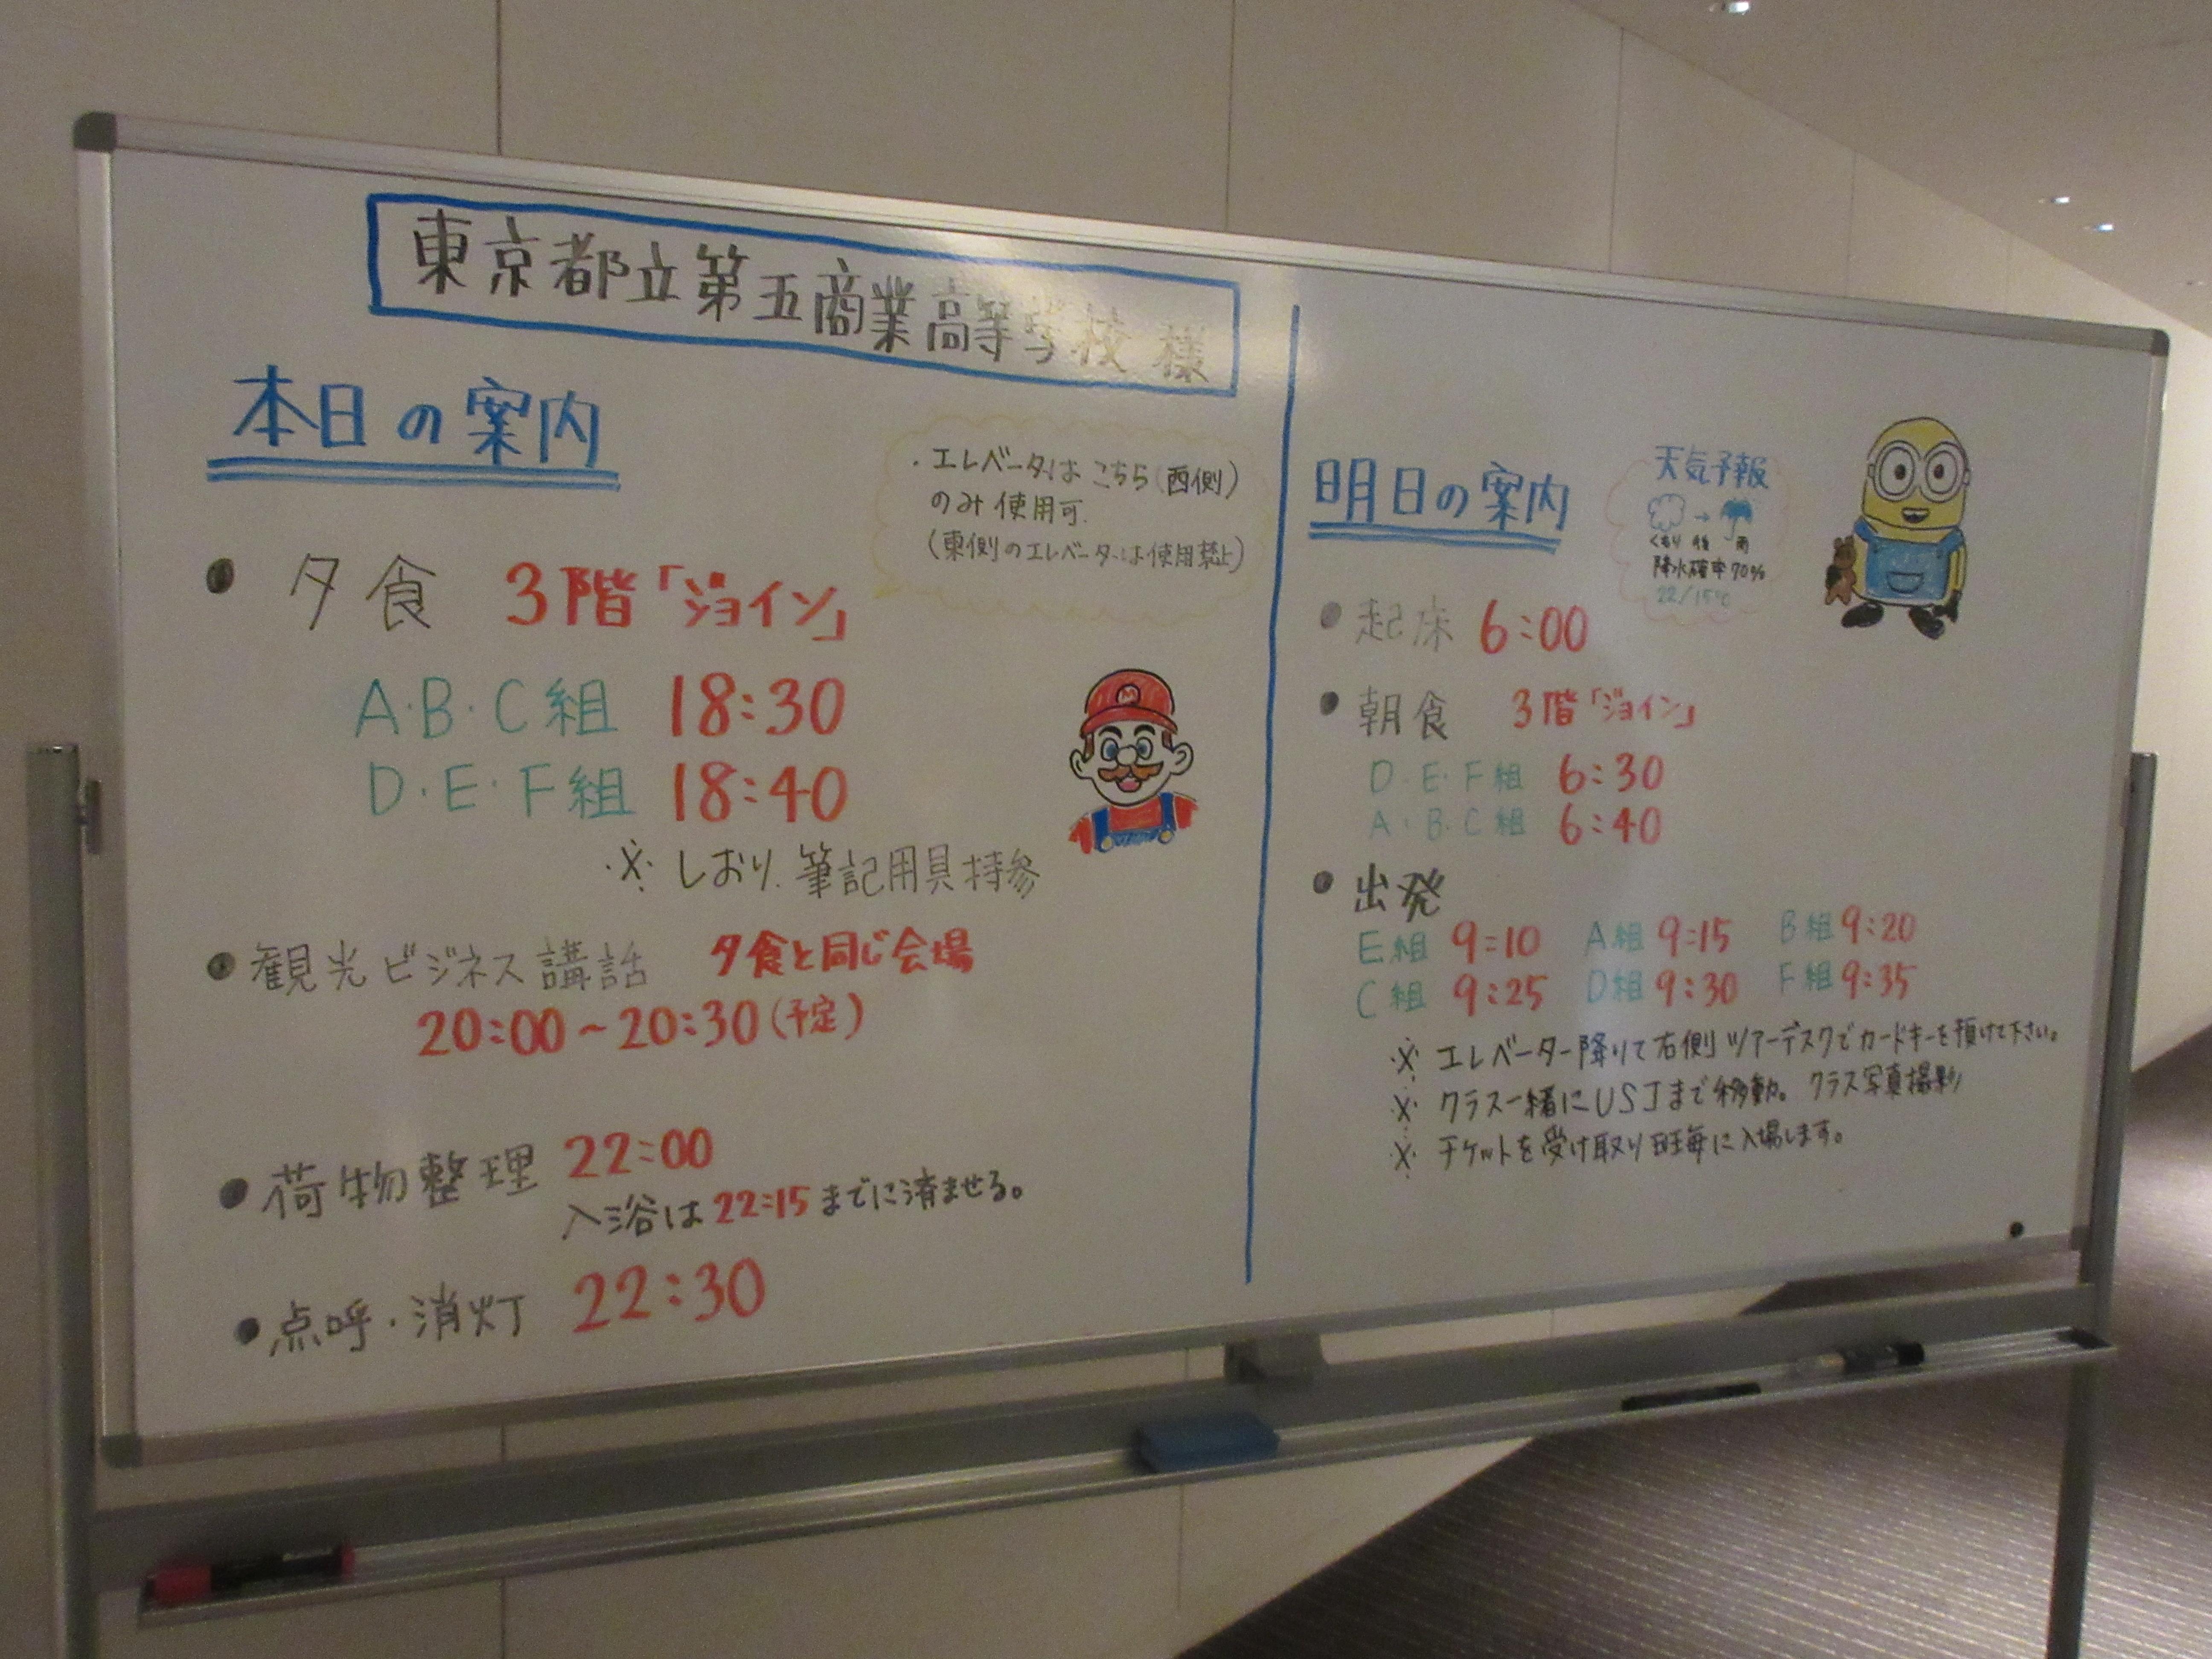 東京都立第五商業高等学校 様
本日の案内
・エレベーターは こちら(西側)
のみ 使用可.
(東側のエレベーターは使用禁止)
● 夕食 3階「ジョイン」
A・B・C組 18:30
D・E・F組 18:40
※ しおり、筆記用具持参
● 観光ビジネス講話 夕食と同じ会場
20:00~20:30(予定)
● 荷物整理 22:00
入浴は22:15までに済ませる。
● 点呼・消灯 22:30
明日の案内
天気予報
→
くもり 後 雨
降水確率70%
22/15℃
● 起床 6:00
● 朝食 3階「ジョイン」
D・E・F組 6:30
A・B・C組 6:40
● 出発
E組 9:10 A組 9:15 B組 9:20
C組 9:25 D組 9:30 F組 9:35
※ エレベーター降りて右側 ツアーデスクでカードキーを預けて下さい。
※ クラス一緒にUSJまで移動。クラス写真撮影
※ チケットを受け取り班毎に入場します。
M